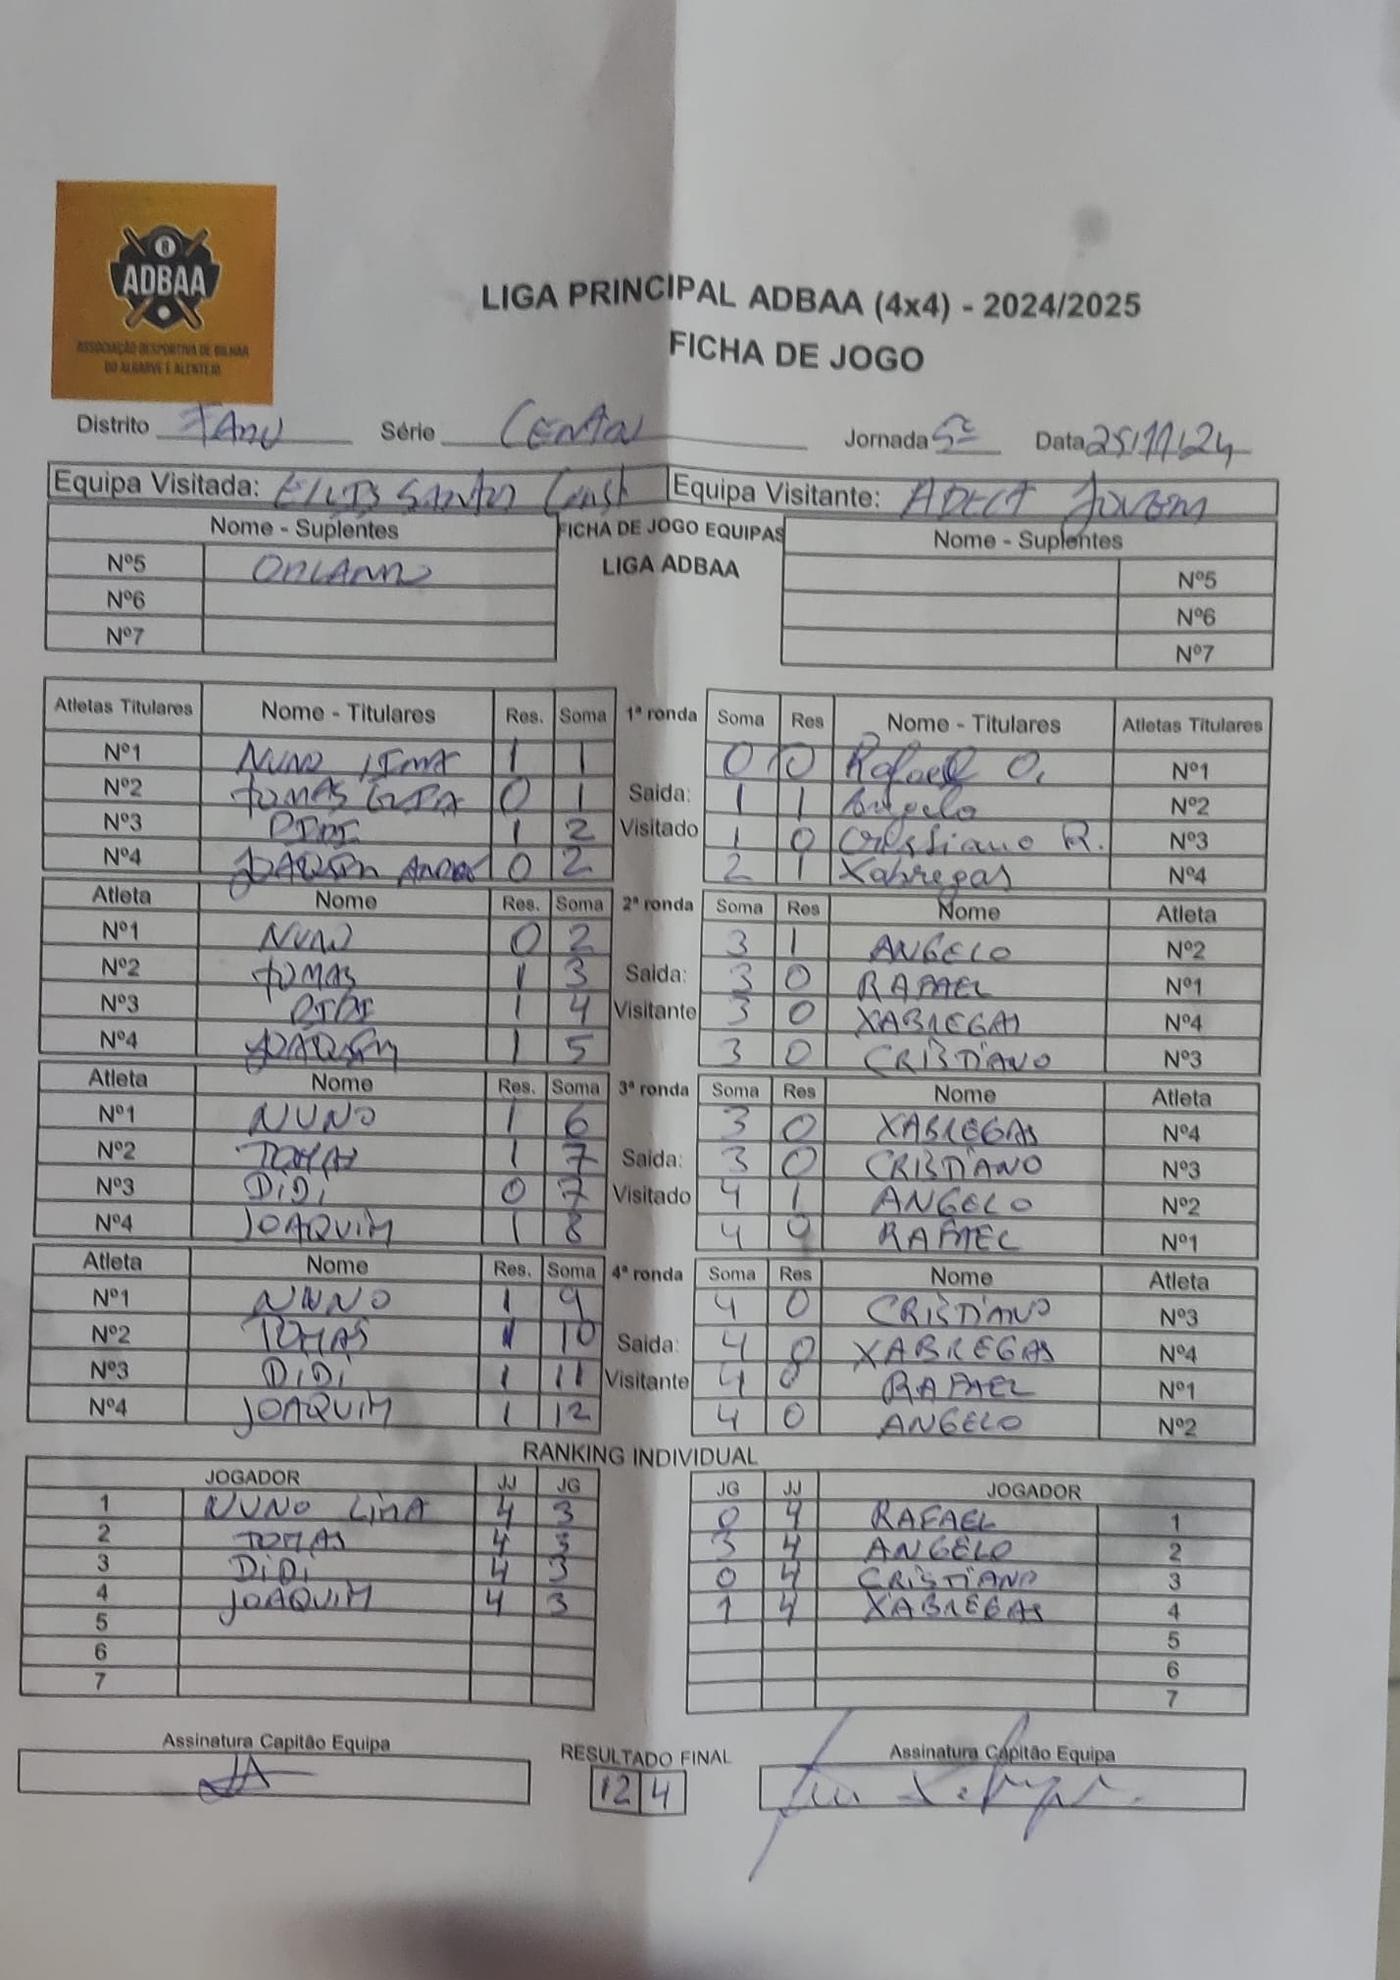 8
ADBAA
ASSOCIAÇÃO DESPORTIVA DE BILHAR
DO ALGARVE E ALENTEJO
LIGA PRINCIPAL ADBAA (4x4) - 2024/2025
FICHA DE JOGO
Distrito Série Jornada 5ª Data 25/11/24
Equipa Visitada: Santos Const Equipa Visitante: Jovem
Nome - Suplentes FICHA DE JOGO EQUIPAS Nome - Suplentes
LIGA ADBAA
Nº5 ORLANDO Nº5
Nº6 Nº6
Nº7 Nº7
Atletas Titulares Nome - Titulares Res. Soma 1ª ronda Soma Res Nome - Titulares Atletas Titulares
Nº1 NUNO LIMA 1 1 0 0 Rafael O. Nº1
Nº2 TOMAS 0 1 Saida: 1 1 Angelo Nº2
Nº3 DIDI 1 2 Visitado 1 0 Cristiano R. Nº3
Nº4 JOAQUIM 0 2 2 1 Xabregas Nº4
Atleta Nome Res. Soma 2ª ronda Soma Res Nome Atleta
Nº1 NUNO 0 2 3 1 ANGELO Nº2
Nº2 TOMAS 1 3 Saida: 3 0 RAFAEL Nº1
Nº3 DIDI 1 4 Visitante 3 0 XABREGAS Nº4
Nº4 JOAQUIM 1 5 3 0 CRISTIANO Nº3
Atleta Nome Res. Soma 3ª ronda Soma Res Nome Atleta
Nº1 NUNO 1 6 3 0 XABREGAS Nº4
Nº2 TOMAS 1 7 Saida: 3 0 CRISTIANO Nº3
Nº3 DIDI 0 7 Visitado 4 1 ANGELO Nº2
Nº4 JOAQUIM 1 8 4 0 RAFAEL Nº1
Atleta Nome Res. Soma 4ª ronda Soma Res Nome Atleta
Nº1 NUNO 1 9 4 0 CRISTIANO Nº3
Nº2 TOMAS 1 10 Saida: 4 0 XABREGAS Nº4
Nº3 DIDI 1 11 Visitante 4 0 RAFAEL Nº1
Nº4 JOAQUIM 1 12 4 0 ANGELO Nº2
RANKING INDIVIDUAL
JOGADOR JJ JG JG JJ JOGADOR
1 NUNO LIMA 4 3 0 4 RAFAEL 1
2 TOMAS 4 3 3 4 ANGELO 2
3 DIDI 4 3 0 4 CRISTIANO 3
4 JOAQUIM 4 3 1 4 XABREGAS 4
5 5
6 6
7 7
Assinatura Capitão Equipa RESULTADO FINAL Assinatura Capitão Equipa
12 4